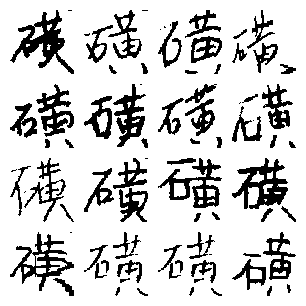 磺磺磺磺
磺磺磺磺
磺磺磺磺
磺磺磺磺